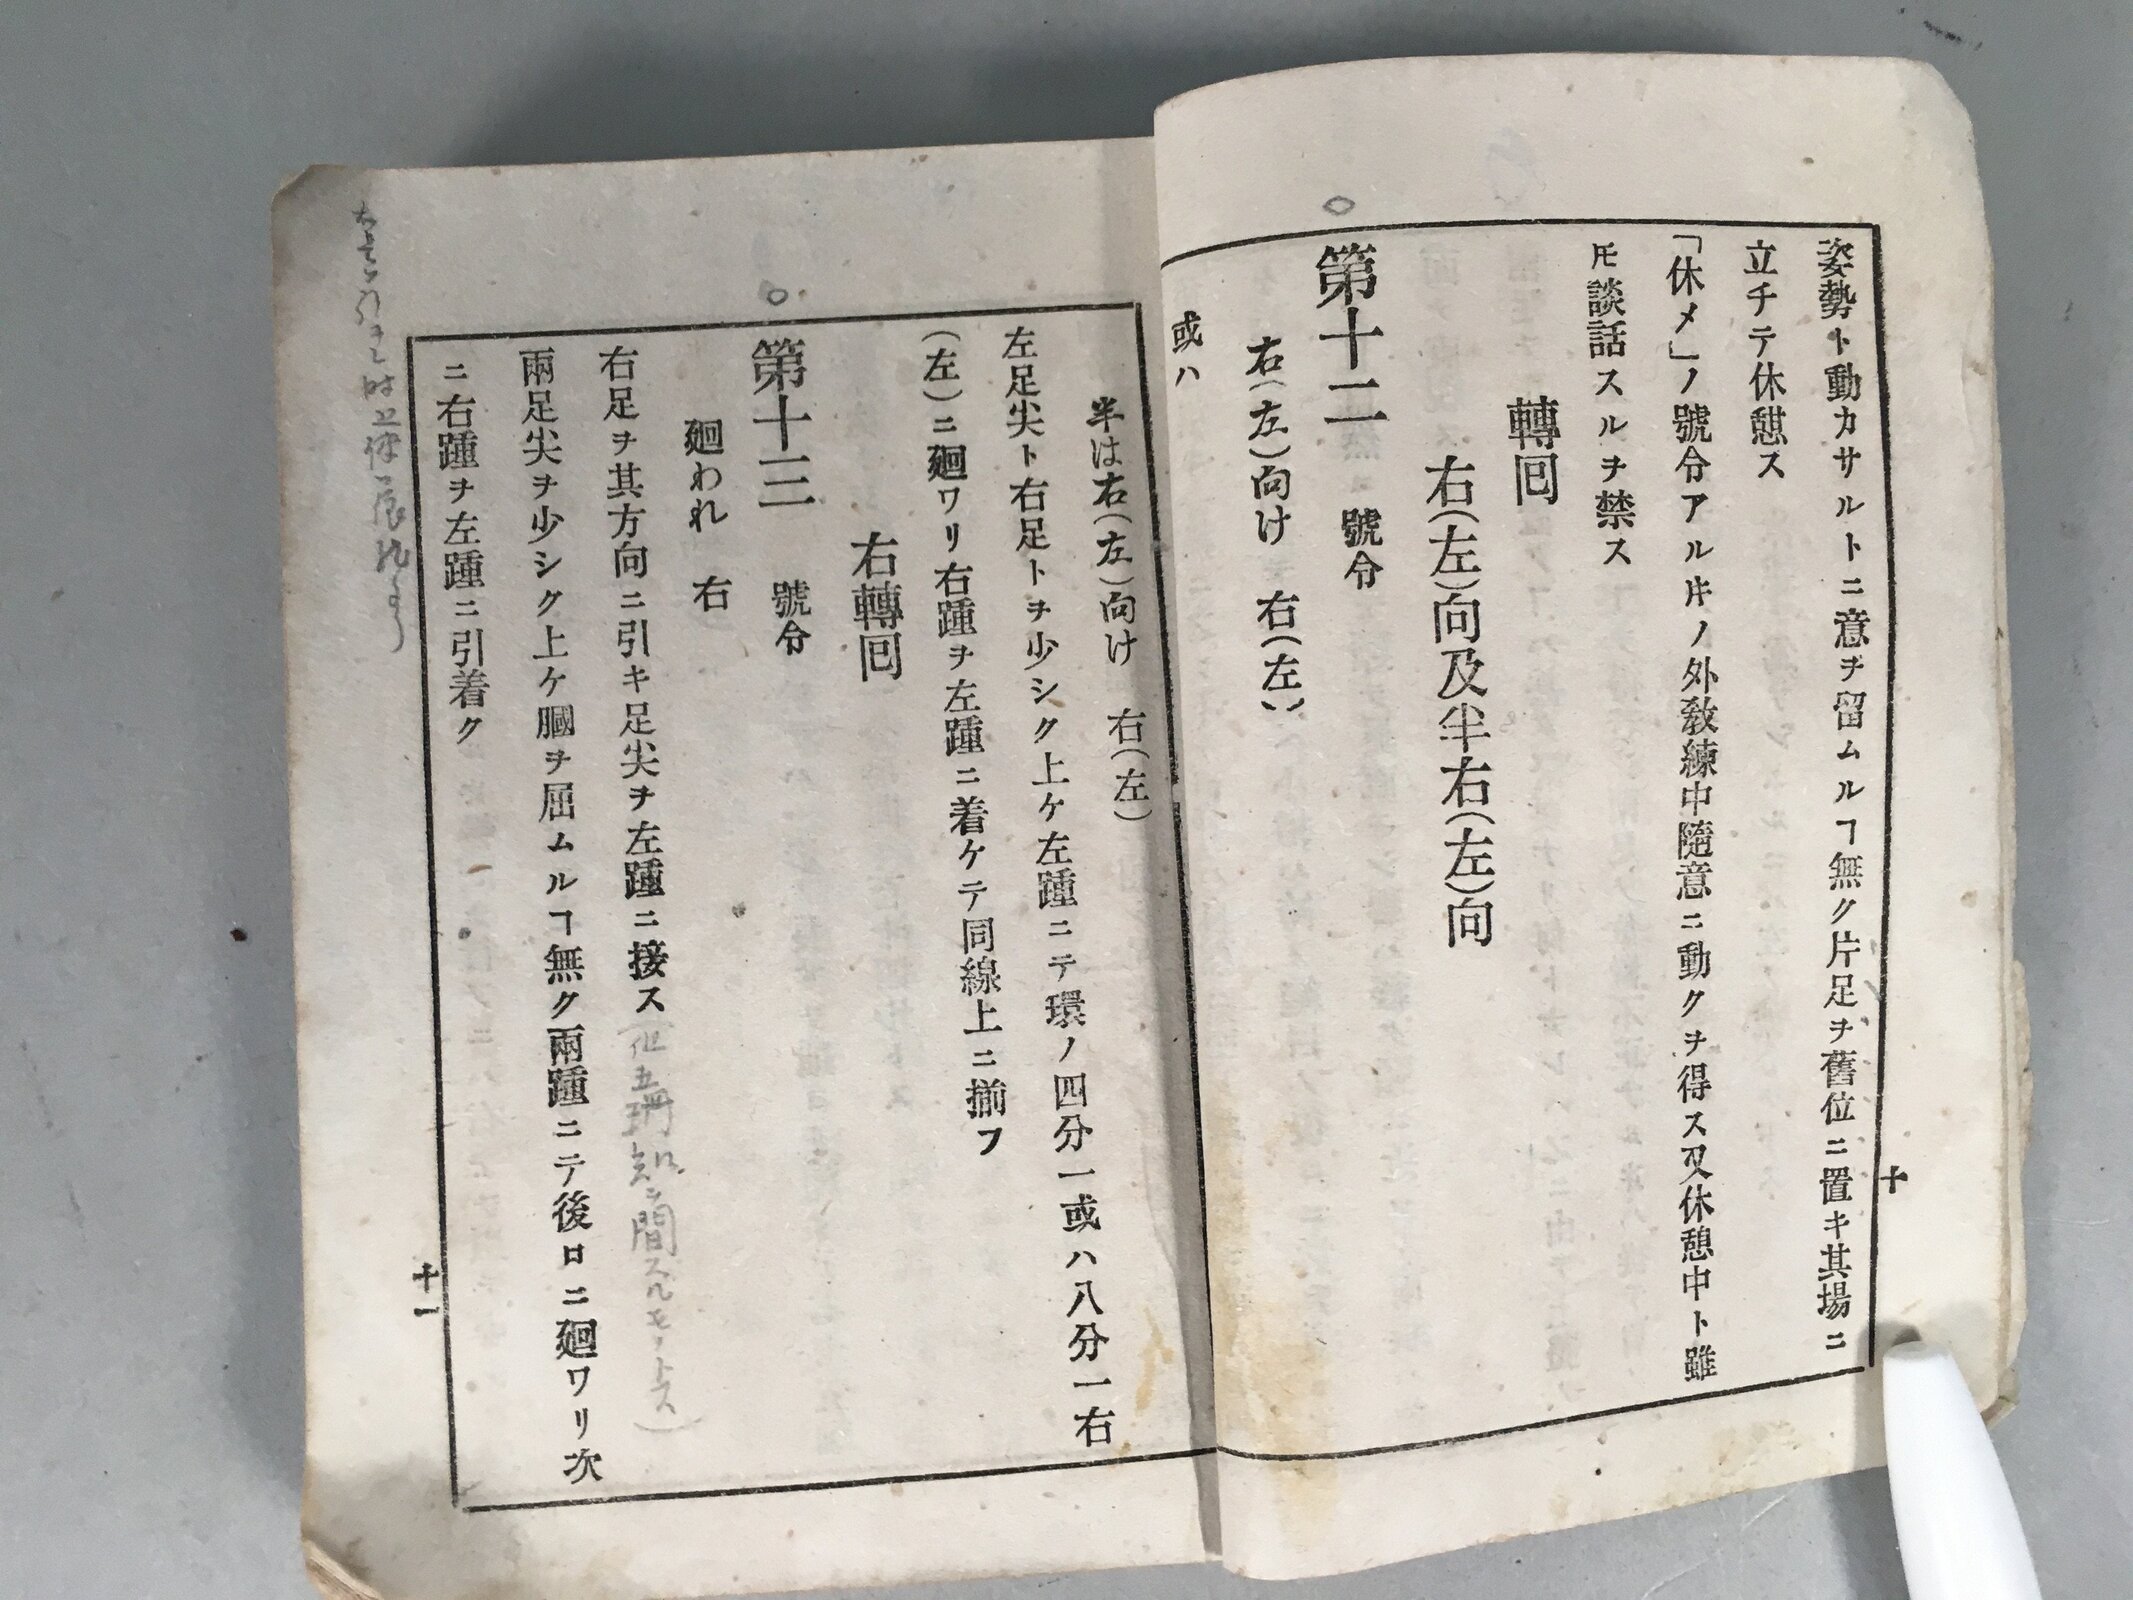 姿勢ト動カサルトニ意ヲ留ムルヿ無ク片足ヲ舊位ニ置キ其場ニ
立チテ休憇ス
「休メ」ノ號令アルㇰノ外敎練中隨意ニ動クヲ得ス又休憩中ト雖
𪜈談話スルヲ禁ス
轉囘
右(左)向及半右(左)向
第十二 號令
右(左)向け 右(左)
或ハ
十
半は右(左)向け 右(左)
左足尖ト右足トヲ少シク上ケ左踵ニテ環ノ四分一或ハ八分一右
(左)ニ廻ワリ右踵ヲ左踵ニ着ケテ同線上ニ揃フ
右轉囘
第十三 號令
廻われ 右
右足ヲ其方向ニ引キ足尖ヲ左踵ニ接ス
兩足尖ヲ少シク上ケ膕ヲ屈ムルヿ無ク兩踵ニテ後ロニ廻ワリ次
ニ右踵ヲ左踵ニ引着ク
十一